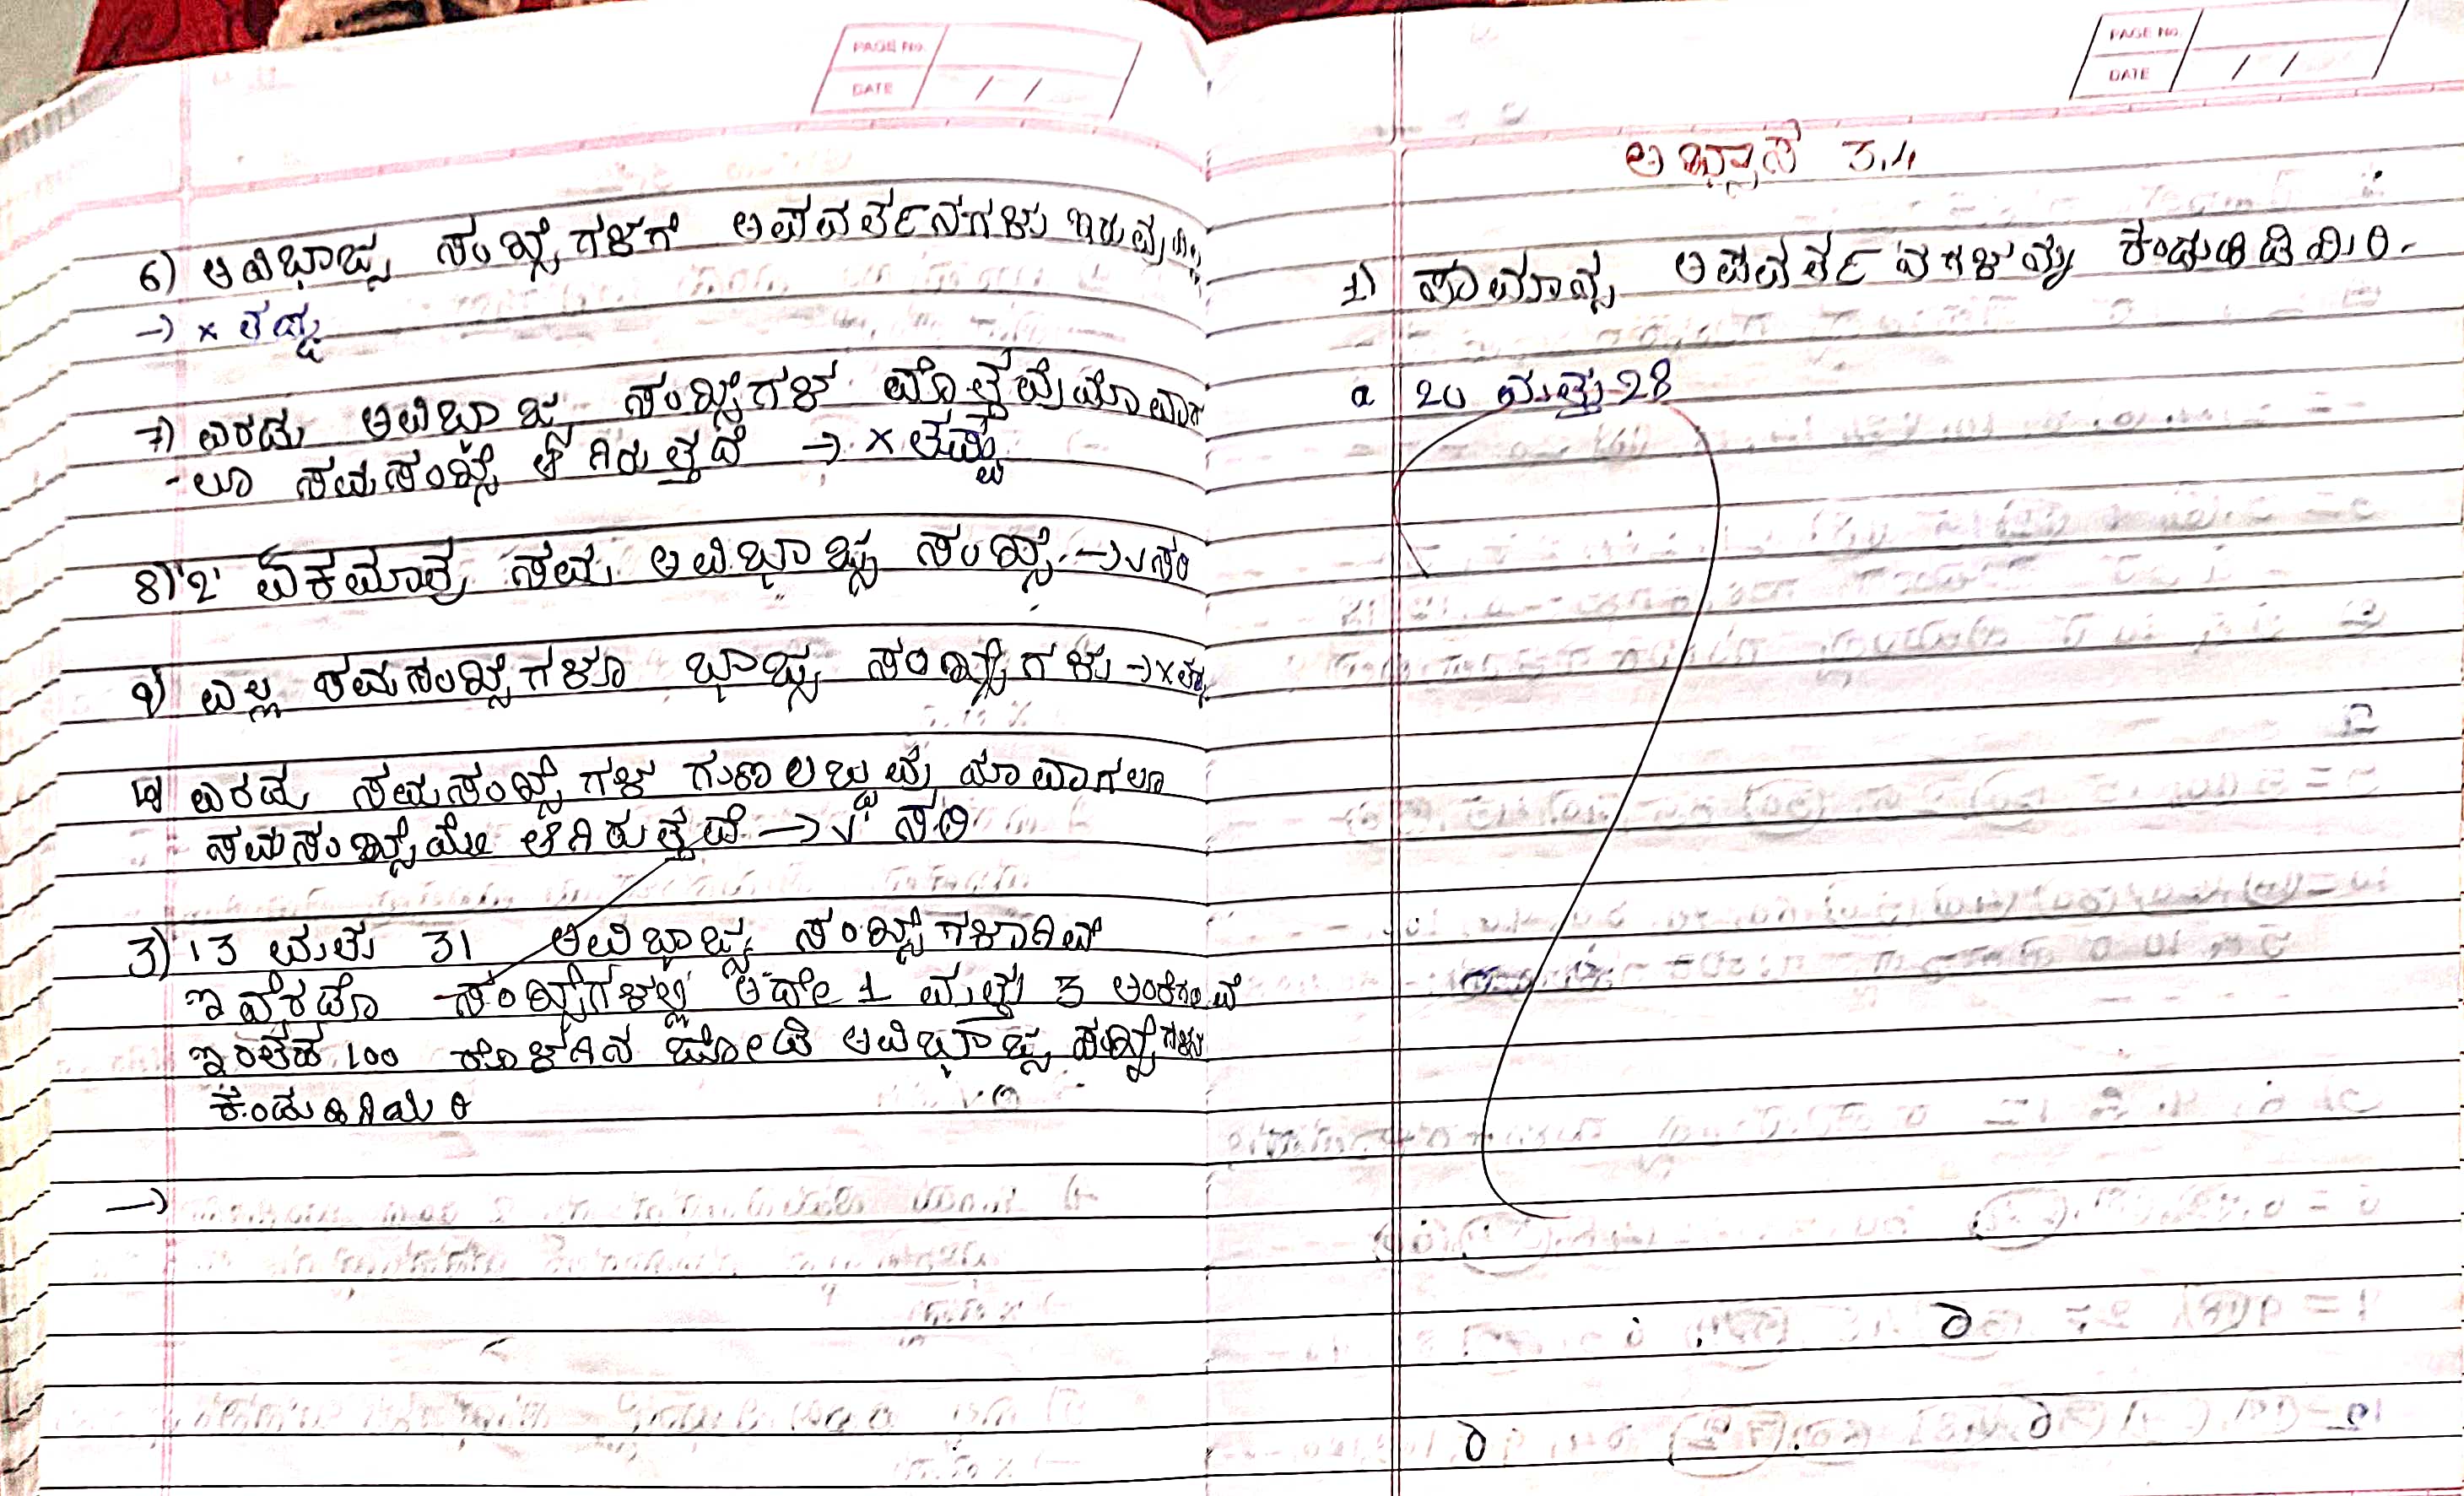 PAGE No.
DATE / /
6) ಅವಿಭಾಜ್ಯ ಸಂಖ್ಯೆಗಳಗೆ ಅಪವರ್ತನಗಳು ಇರುವುದಿಲ್ಲ
→ × ತಪ್ಪು
7) ಎರಡು ಅವಿಭಾಜ್ಯ ಸಂಖ್ಯೆಗಳ ಮೊತ್ತವು ಯಾವಾಗ
- ಲೂ ಸಮಸಂಖ್ಯೆ ಆಗಿರುತ್ತದೆ → × ತಪ್ಪು
8) '2' ಏಕಮಾತ್ರ ಸಮ ಅವಿಭಾಜ್ಯ ಸಂಖ್ಯೆ. → √ ಸರಿ
9) ಎಲ್ಲ ಸಮಸಂಖ್ಯೆಗಳೂ ಭಾಜ್ಯ ಸಂಖ್ಯೆಗಳು → × ತಪ್ಪು
10) ಎರಡು ಸಮಸಂಖ್ಯೆಗಳ ಗುಣಲಬ್ಧವು ಯಾವಾಗಲೂ
ಸಮಸಂಖ್ಯೆಯೇ ಆಗಿರುತ್ತದೆ → √ ಸರಿ
3) 13 ಮತು 31 ಅವಿಭಾಜ್ಯ ಸಂಖ್ಯೆಗಳಾಗಿವೆ
ಇವೆರಡೂ ಸಂಖ್ಯೆಗಳಲ್ಲಿ ಅದೇ 1 ಮತ್ತು 3 ಅಂಕೆಗಳಿವೆ
ಇಂತಹ 100 ರೊಳಗಿನ ಜೋಡಿ ಅವಿಭಾಜ್ಯ ಸಂಖ್ಯೆಗಳನು
ಕಂಡುಹಿಡಿಯಿರಿ
→
PAGE No.
DATE / /
ಅಭ್ಯಾಸ 3.4
1) ಸಾಮಾನ್ಯ ಅಪವರ್ತನಗಳನ್ನು ಕಂಡುಹಿಡಿಯಿರಿ.
a 20 ಮತ್ತು 28